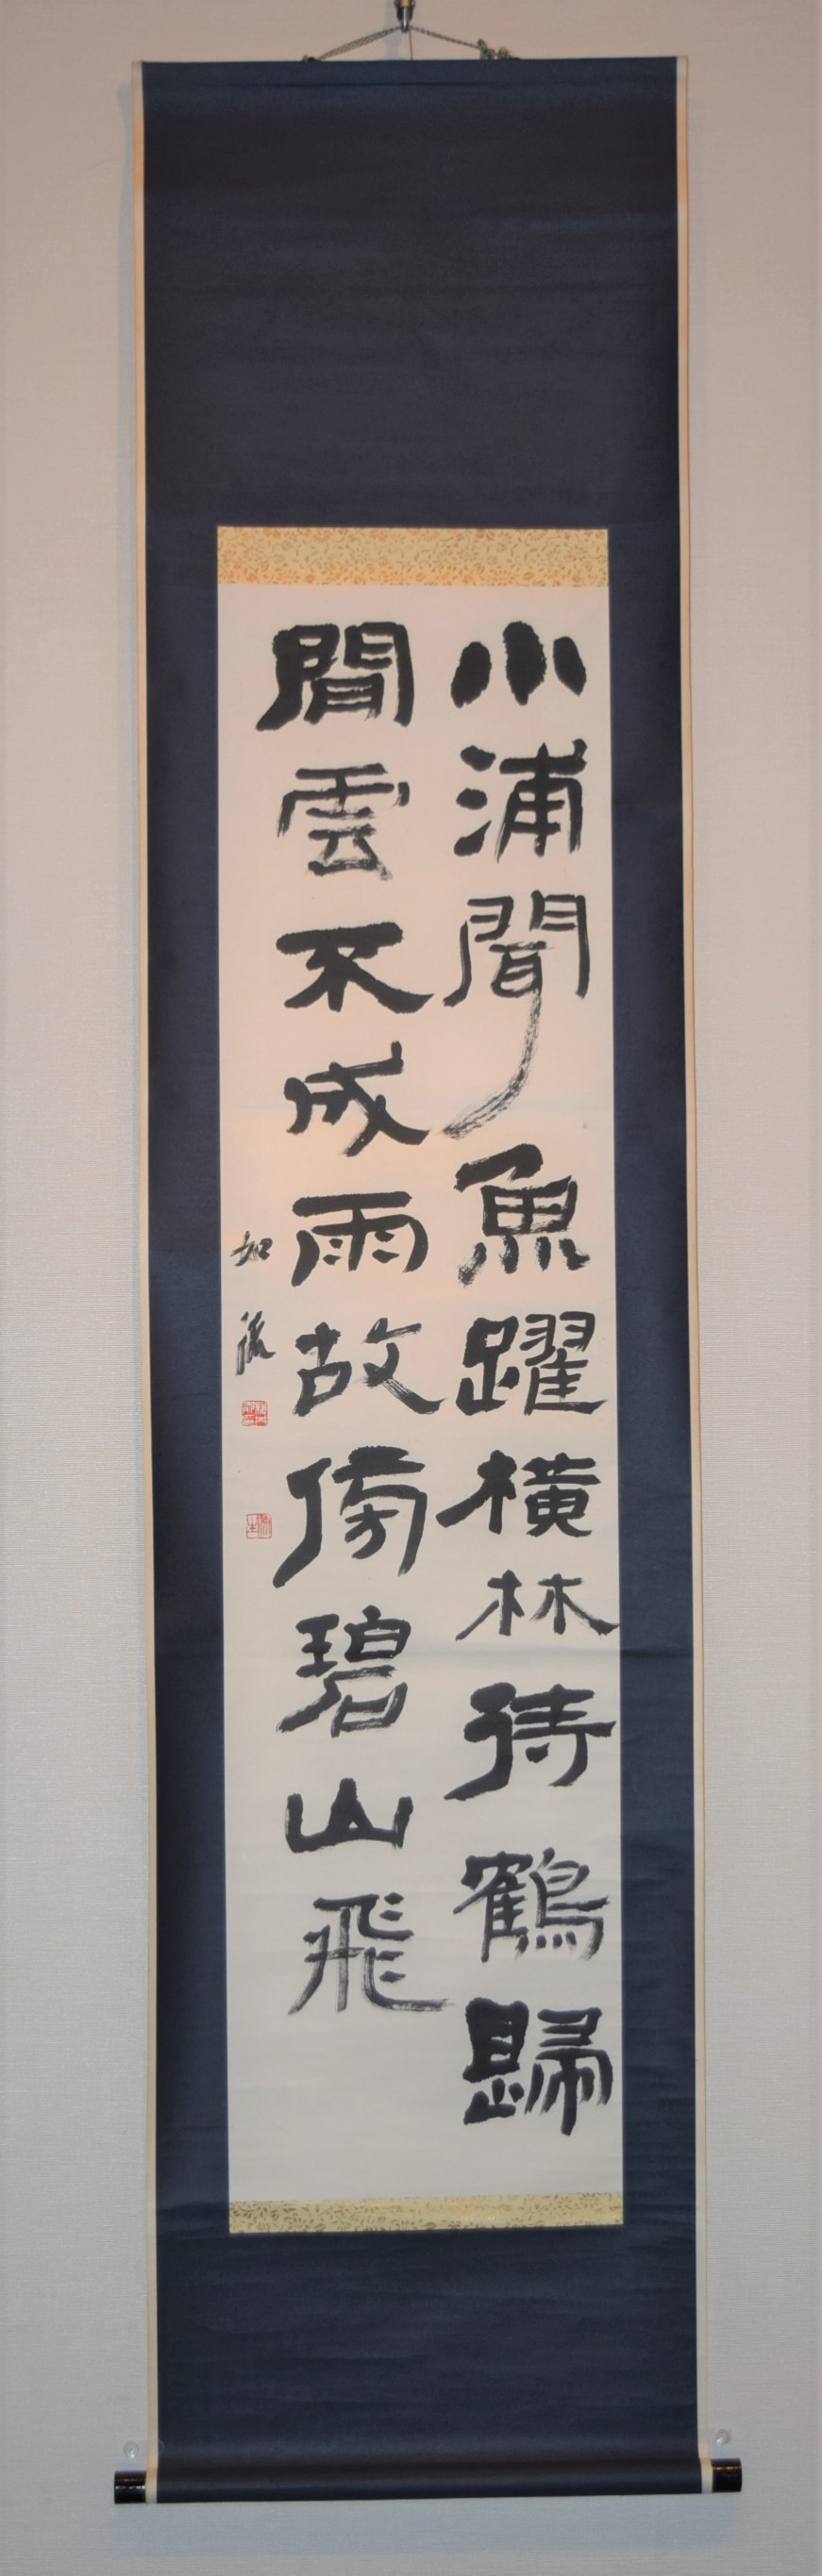 小浦聞魚躍橫林待鶴歸
閒雲不成雨故傍碧山飛
如